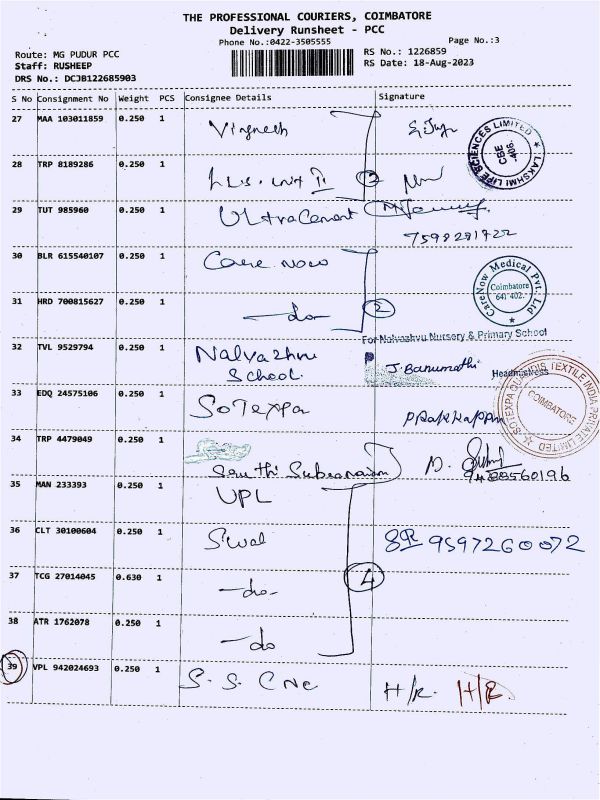 THE PROFESSIONAL COURIERS, COIMBATORE
Delivery Runsheet - PCC
Phone No.:0422-3505555
Page No.:3
Route: MG PUDUR PCC
Staff: RUSHEEP
DRS No.: DCJB122685903
RS No.: 1226859
RS Date: 18-Aug-2023
S No Consignment No Weight PCS Consignee Details Signature
27 MAA 103011859 0.250 1 Vignesh
LAKSHMI LIFE SCIENCES LIMITED
CBE
-406.
28 TRP 8189286 0.250 1 Unit II 2
29 TUT 985960 0.250 1 Ultra Cement
7598281722
30 BLR 615540107 0.250 1 Care Now
CareNow Medical Pvt. Ltd
Coimbatore
641 402.
31 HRD 700815627 0.250 1 -do- 2
For Nalvazhvu Nursery & Primary School
32 TVL 9529794 0.250 1 Nalvazhvu School. J. Banumathi Headmistress
33 EDQ 24575106 0.250 1 Sotexpa
SOTEXPA QUALIDIS TEXTILE INDIA PRIVATE LIMITED
COIMBATORE
34 TRP 4479049 0.250 1
9488560196
35 MAN 233393 0.250 1 UPL
36 CLT 30100604 0.250 1 Swal 9597260072
37 TCG 27014045 0.630 1 -do- 4
38 ATR 1762078 0.250 1 -do
39 VPL 942024693 0.250 1 S. S. CNC H/R. H/R.